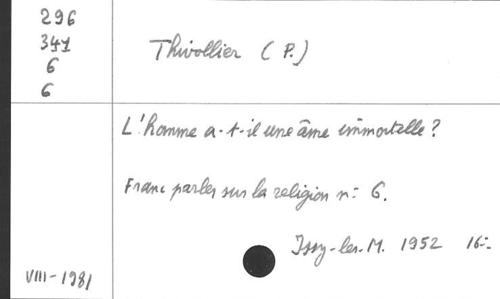 296
341
6
6
Thivollier (P.)
L'homme a-t-il une âme immortelle?
Franc parler sur la religion n: 6.
Issy-les-M. 1952 16:-
VIII-1981